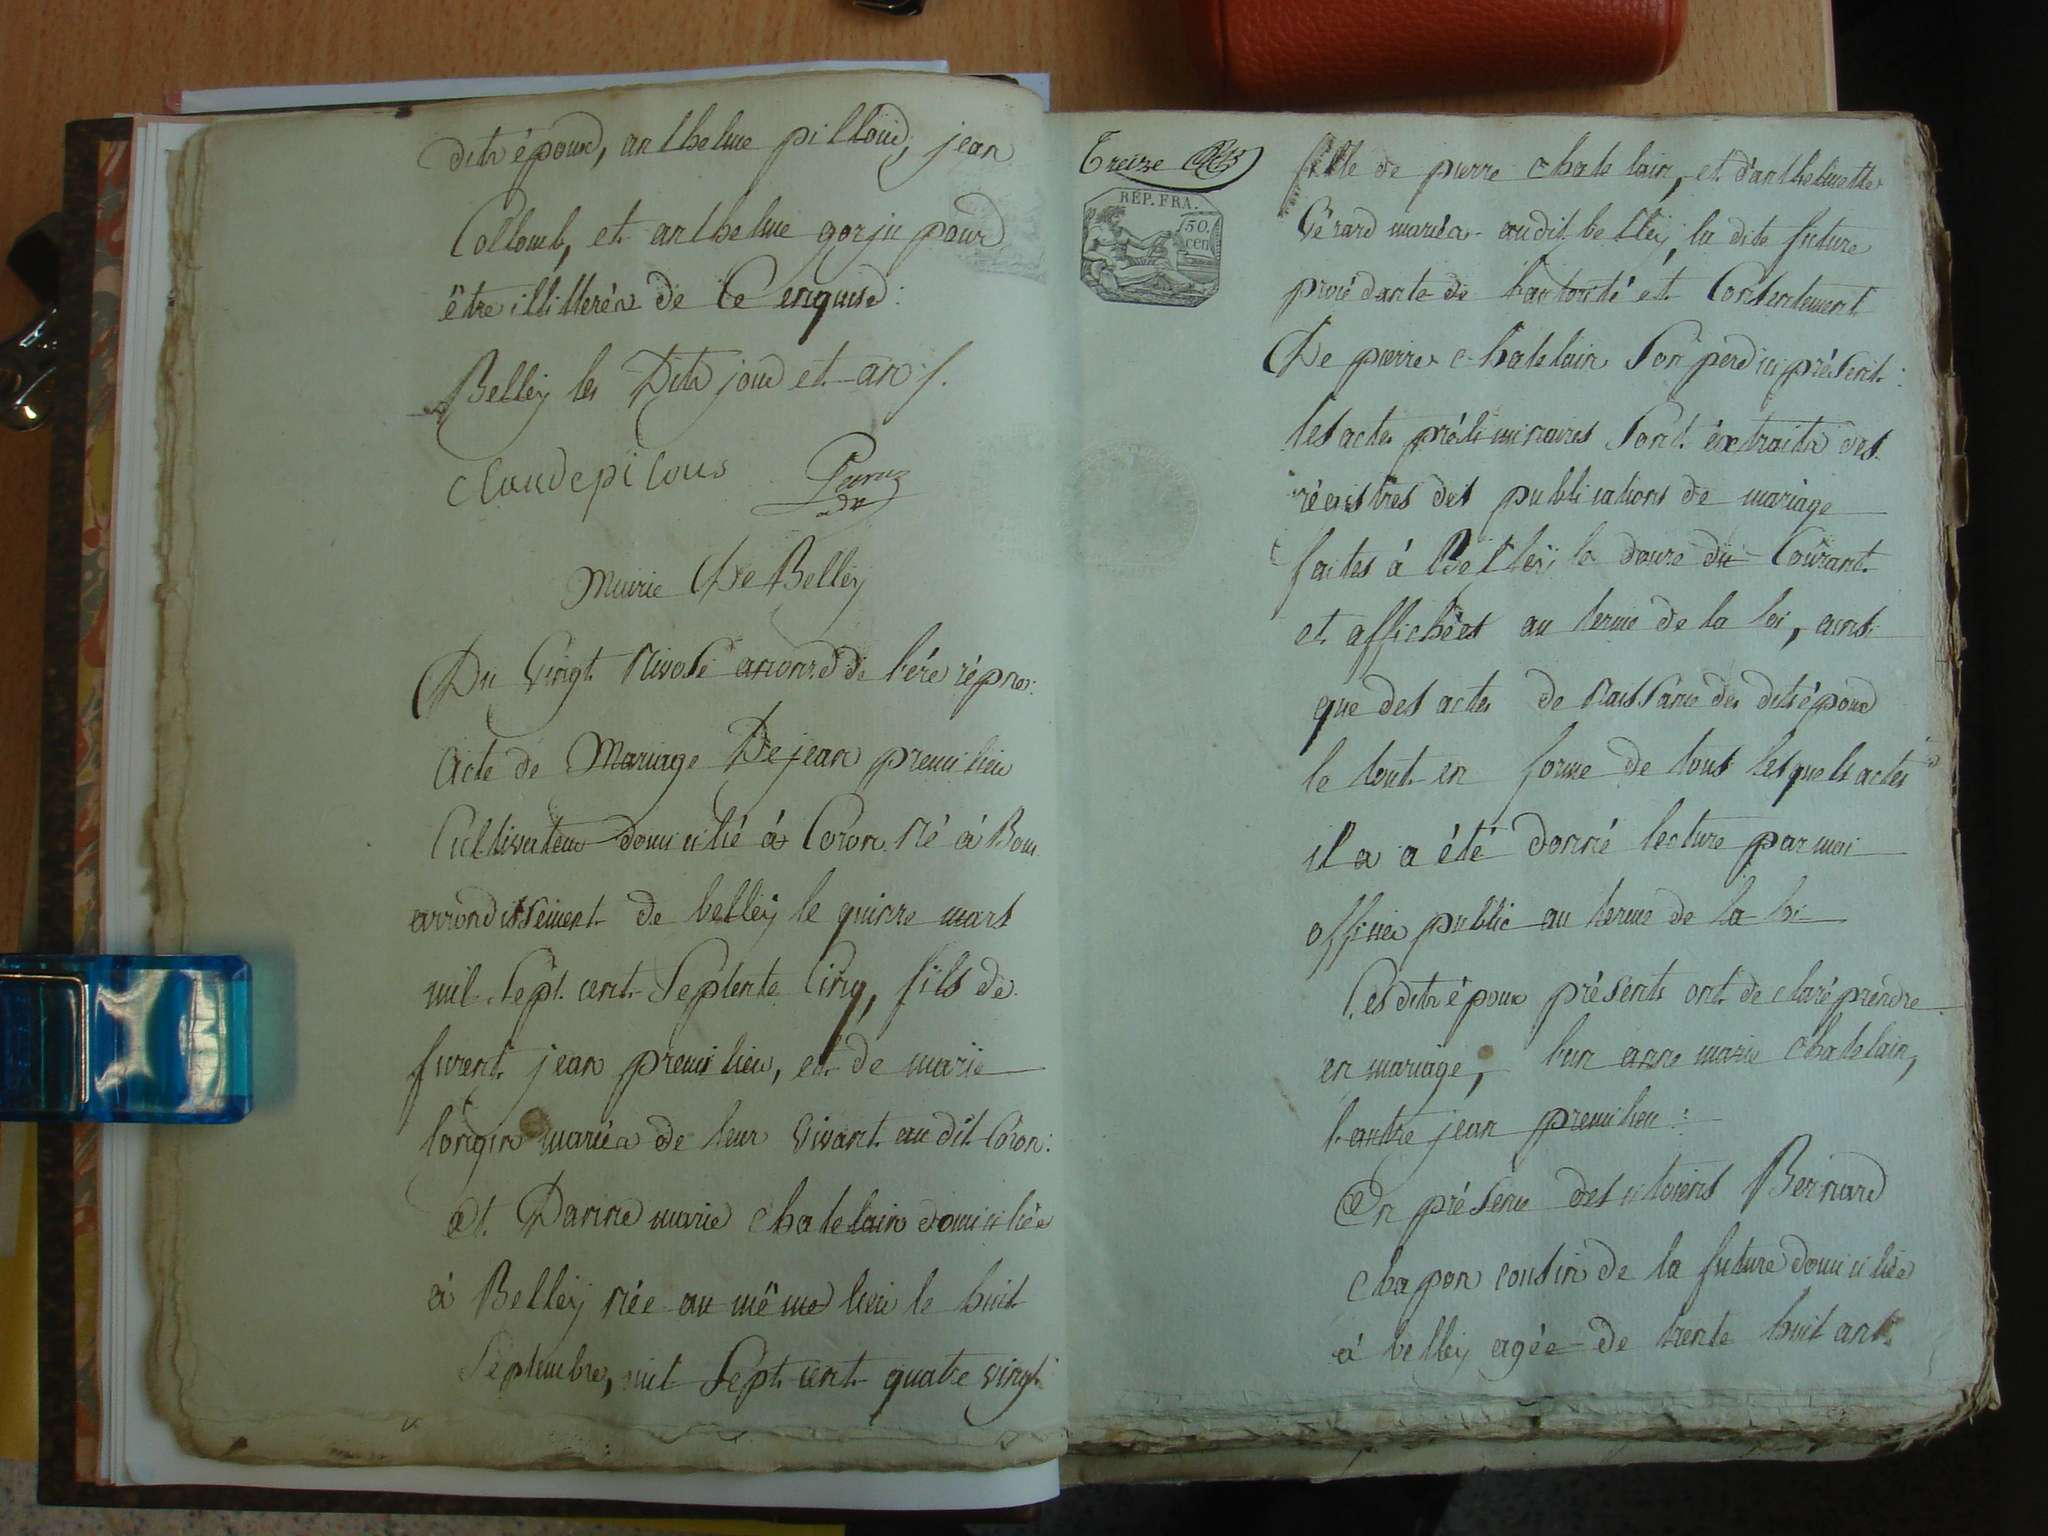 dits époux, anthelme pilloud, jean
Collomb, et anthelme gorju pour
être illitterés de Ce enquis:
Belley les Dits jour et an /.
Claudepilous
Mairie De Belley
Du Vingt Nivose an onze de l'ére répne:
Acte de Mariage De jean premilieu
Cultivateur domicilié à Coron Né à Bons
arrondissement de belley le quinze mars
mil Sept cent Septente Cinq, fils de
furent jean premilieu, et de marie
longin mariés de leur vivant au dit Coron:
et D'anne marie chatelain domiciliée
à Belley née au même lieu le huit
Septembre, mil Sept cent quatre vingt
Treize
RÉP. FRA.
50.
cen
fille de pierre chatelain, et d'anthelmette
Gérard mariés audit belley, la dite future
procédante de l'autorité et Contentement
De pierre chatelain Son per ici présent:
les actes préliminaires Sont éxtraits des
régistres des publications de mariage
faites à Belley le douze du Courant
et affichées au terme de la loi, ainsi
que des actes de Naissance des dits époux
le tout en forme de tous lesquels actes
il a a été donné lecture par moi
officier public au terme de la loi
Les dits époux présents ont déclaré prendre
en mariage, l'un anne marie chatelain,
l'autre jean premilieu:
En présence des citoiens Bernard
chapon cousin de la future domicilié
à belley agée de trente huit ans